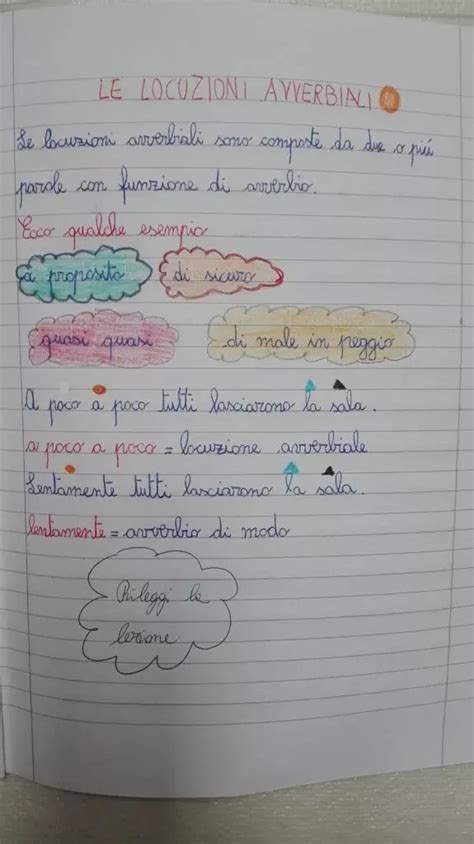 LE LOCUZIONI AVVERBIALI
Le locuzioni avverbiali sono composte da due o più
parole con funzione di avverbio.
Ecco qualche esempio
a proposito di sicuro
quasi quasi di male in peggio
A poco a poco tutti lasciarono la sala.
a poco a poco = locuzione avverbiale
Lentamente tutti lasciarono la sala.
lentamente = avverbio di modo
Rileggi la
lezione